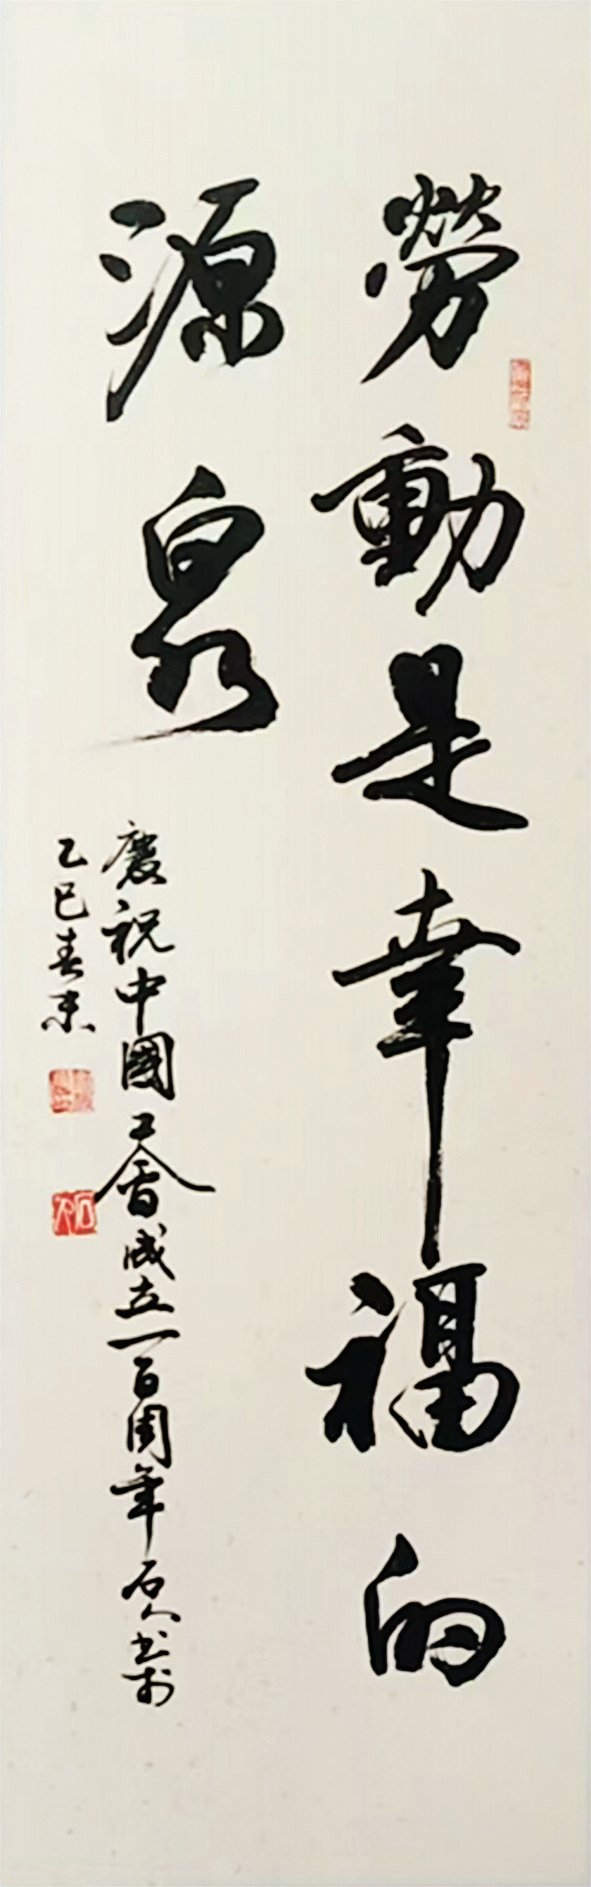 勞動是幸福的
源泉
慶祝中國工會成立一百周年石人書於
乙巳春末
石人